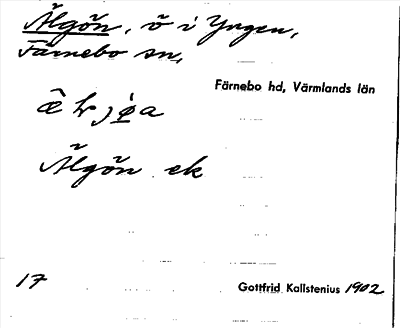 Älgön, ö i Yngen,
Färnebo sn,
Färnebo hd, Värmlands län
Älgön ek
17
Gottfrid Kallstenius 1902